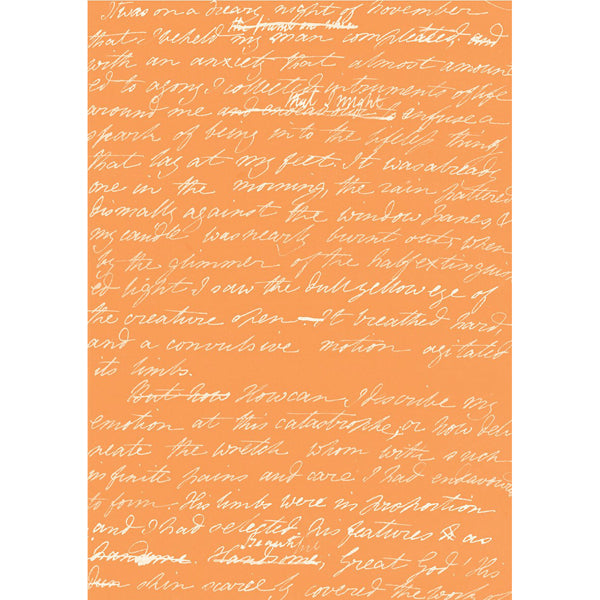 It was on a dreary night of November
the frame on when
that I beheld my man compleated, and
with an anxiety that almost amount
ed to agony, I collected instruments of life
that I might
around me and endeavour to infuse a
spark of being into the lifeless thing
that lay at my feet. It was already
one in the morning, the rain pattered
dismally against the window panes, &
my candle was nearly burnt out, when
by the glimmer of the half extinguish
ed light I saw the dull yellow eye of
the creature open – It breathed hard,
and a convulsive motion agitated
its limbs.
But how How can I describe my
emotion at this catastrophe, or how deli
neate the wretch whom with such
infinite pains and care I had endeavoured
to form. His limbs were in proportion
and I had selected his features & as
Beautiful
handsome. Handsome; Great God! His
dun skin scarcely covered the work of